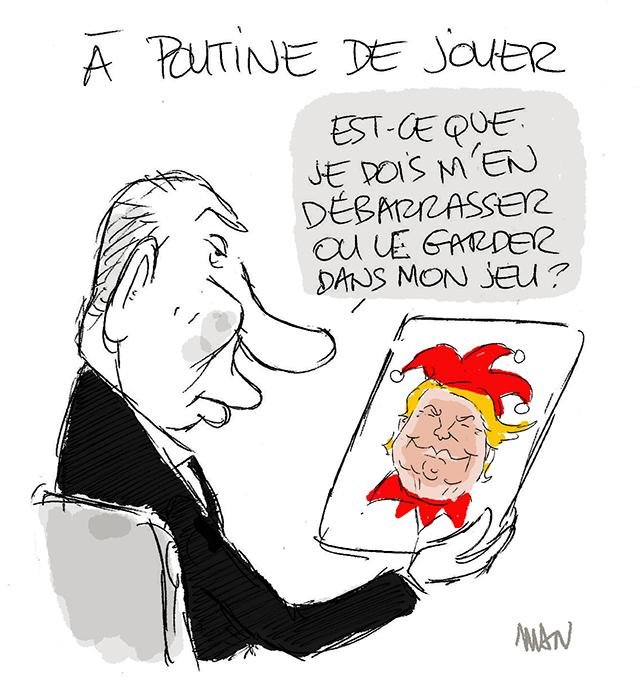 À POUTINE DE JOUER
EST-CE QUE
JE DOIS M'EN
DÉBARRASSER
OU LE GARDER
DANS MON JEU ?
MAN